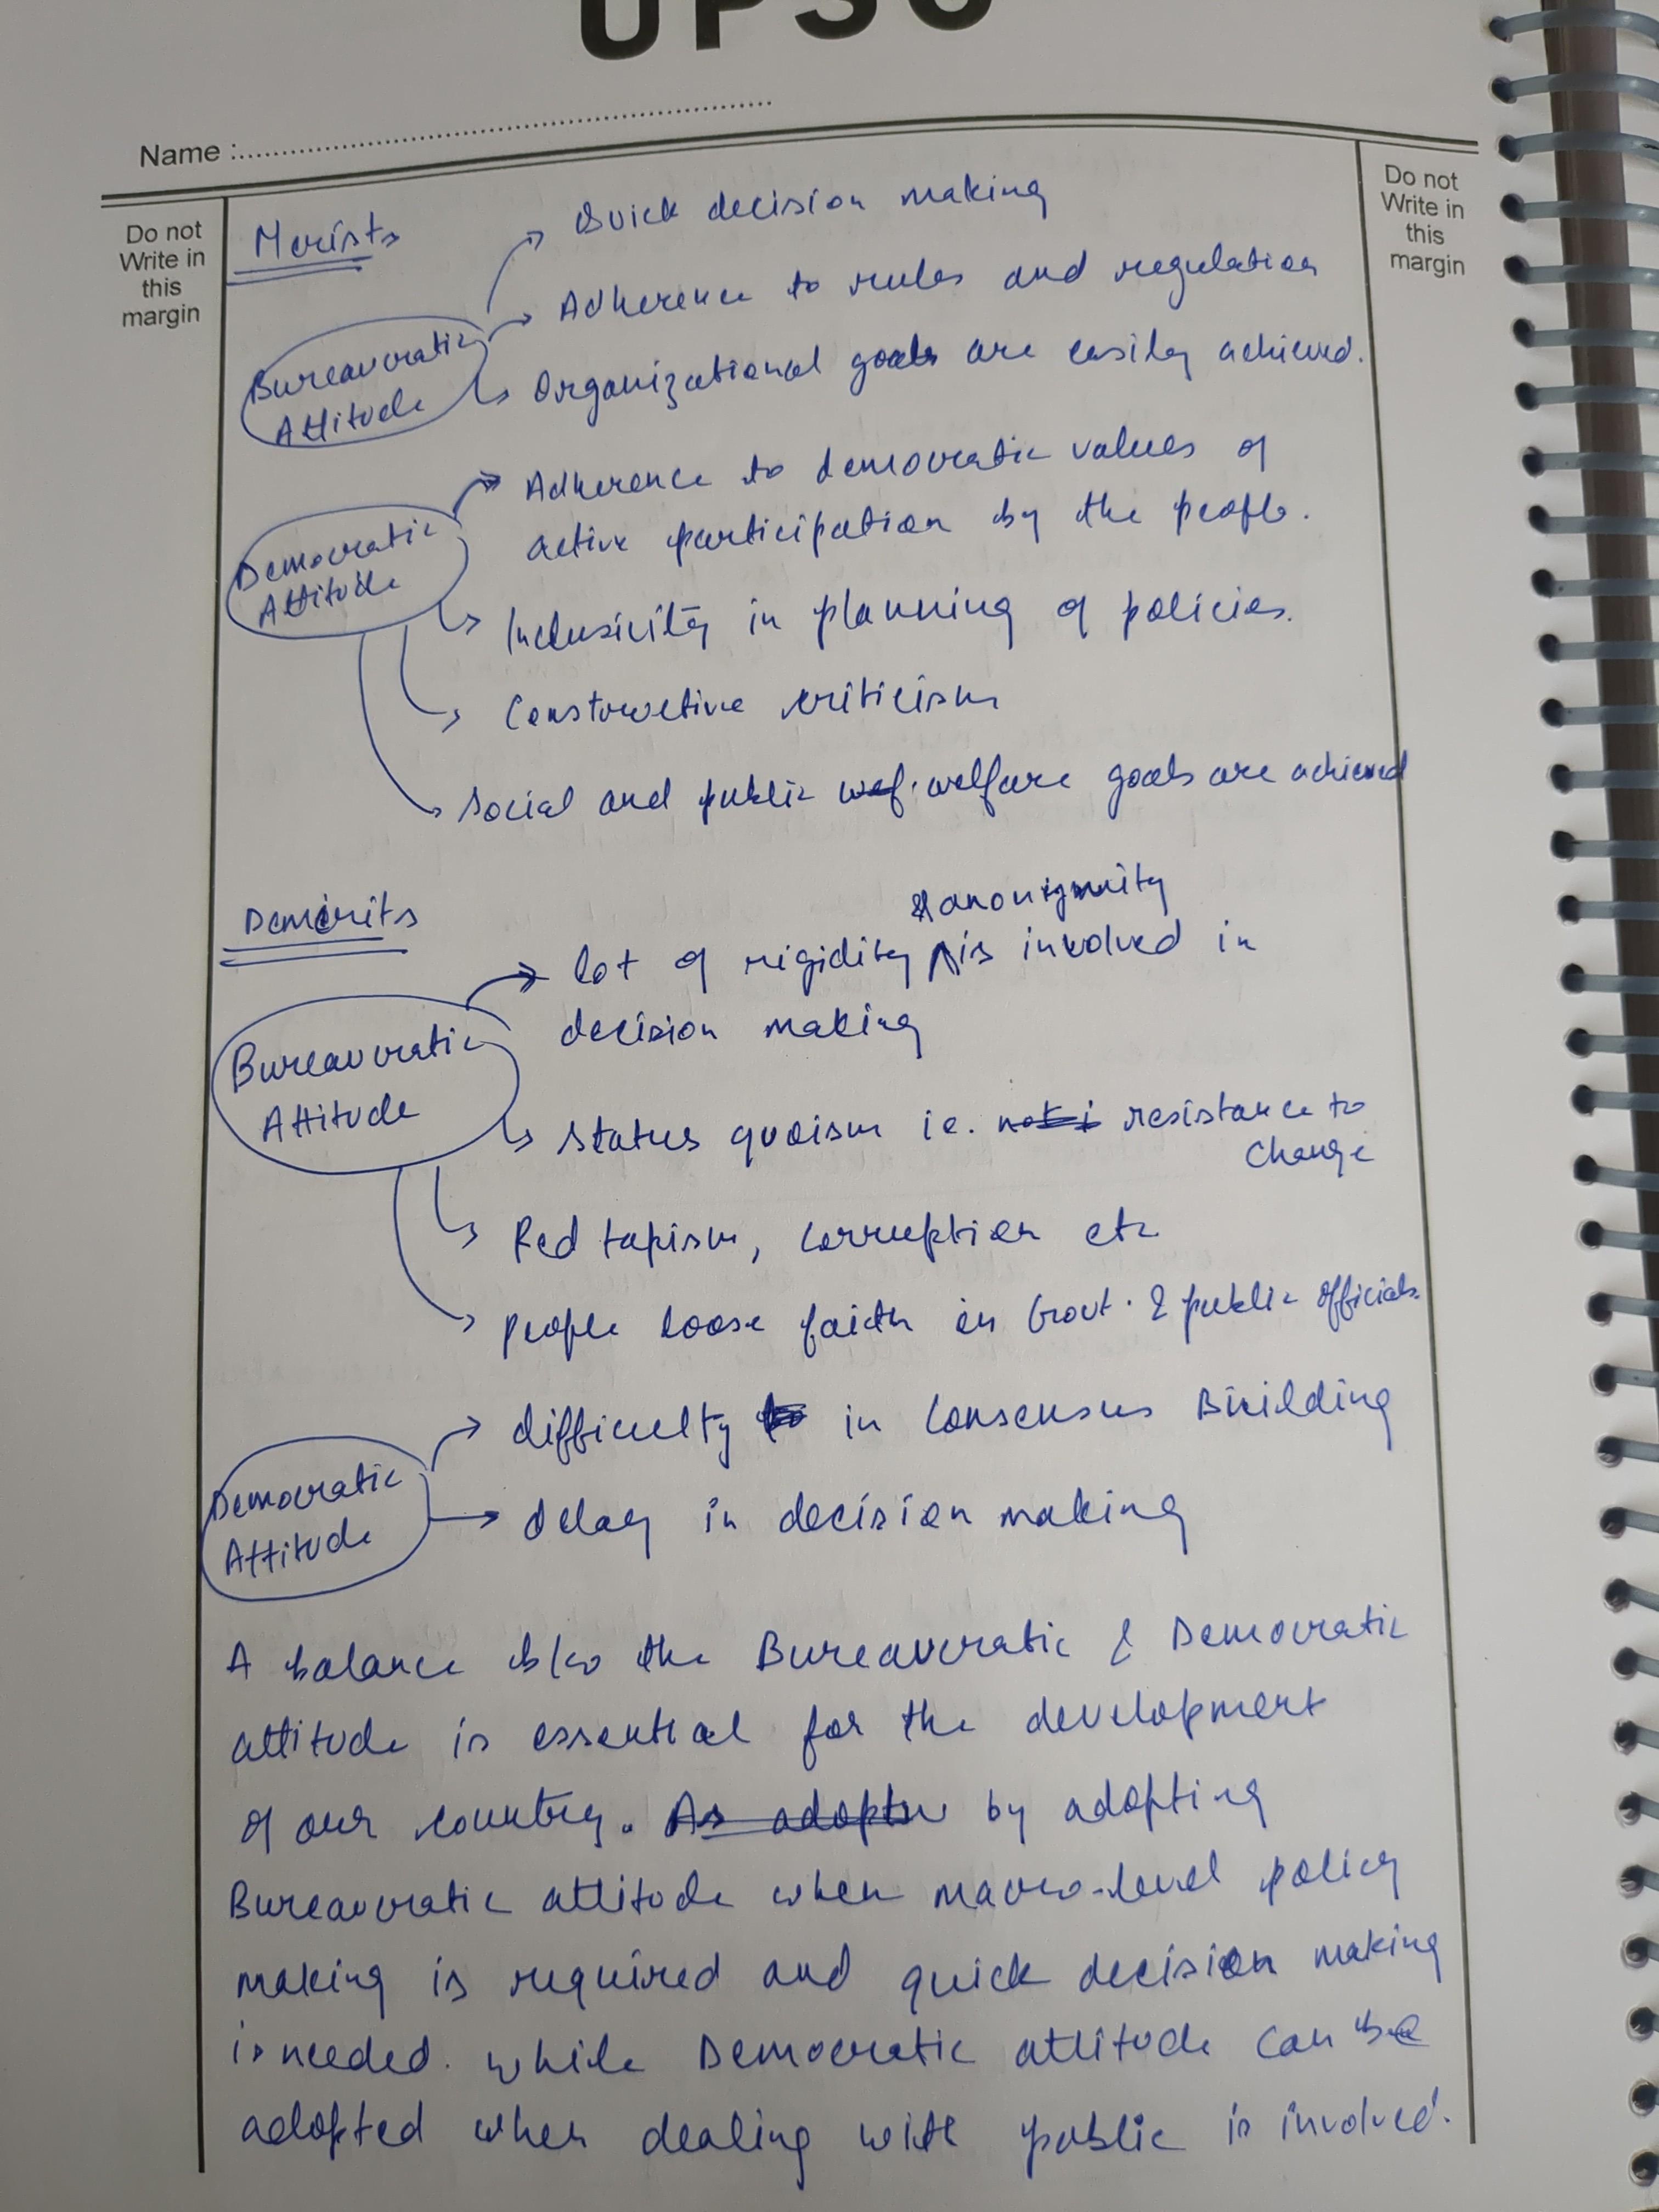 UPSC
Name :
Do not
Write in
this
margin
Do not
Write in
this
margin
Merists
Quick decision making
Adherence to rules and regulation
Bureaucratic
Attitude
Organizational goals are easily achieved.
Adherence to democratic values of
active participation by the people.
Democratic
Attitude
Inclusivity in planning of policies.
Constructive criticism
Social and public wef. welfare goals are achieved
Demerits
& anonymity
lot of rigidity is involved in
decision making
Bureaucratic
Attitude
Status quoism ie. not i resistance to
change
Red tapism, corruption etc
People loose faith in Govt. & public officials.
difficulty to in Consensus Building
Democratic
Attitude
delay in decision making
A balance b/w the Bureaucratic & Democratic
attitude is essential for the development
of our country. As adopt by adopting
Bureaucratic attitude when macro-level policy
making is required and quick decision making
is needed. while Democratic attitude can be
adopted when dealing with public is involved.